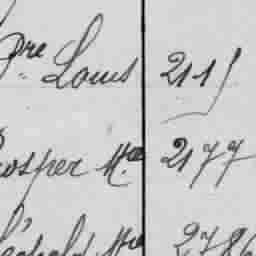 pre Louis 211
rosper Me 2177
Léopold Mie 2786